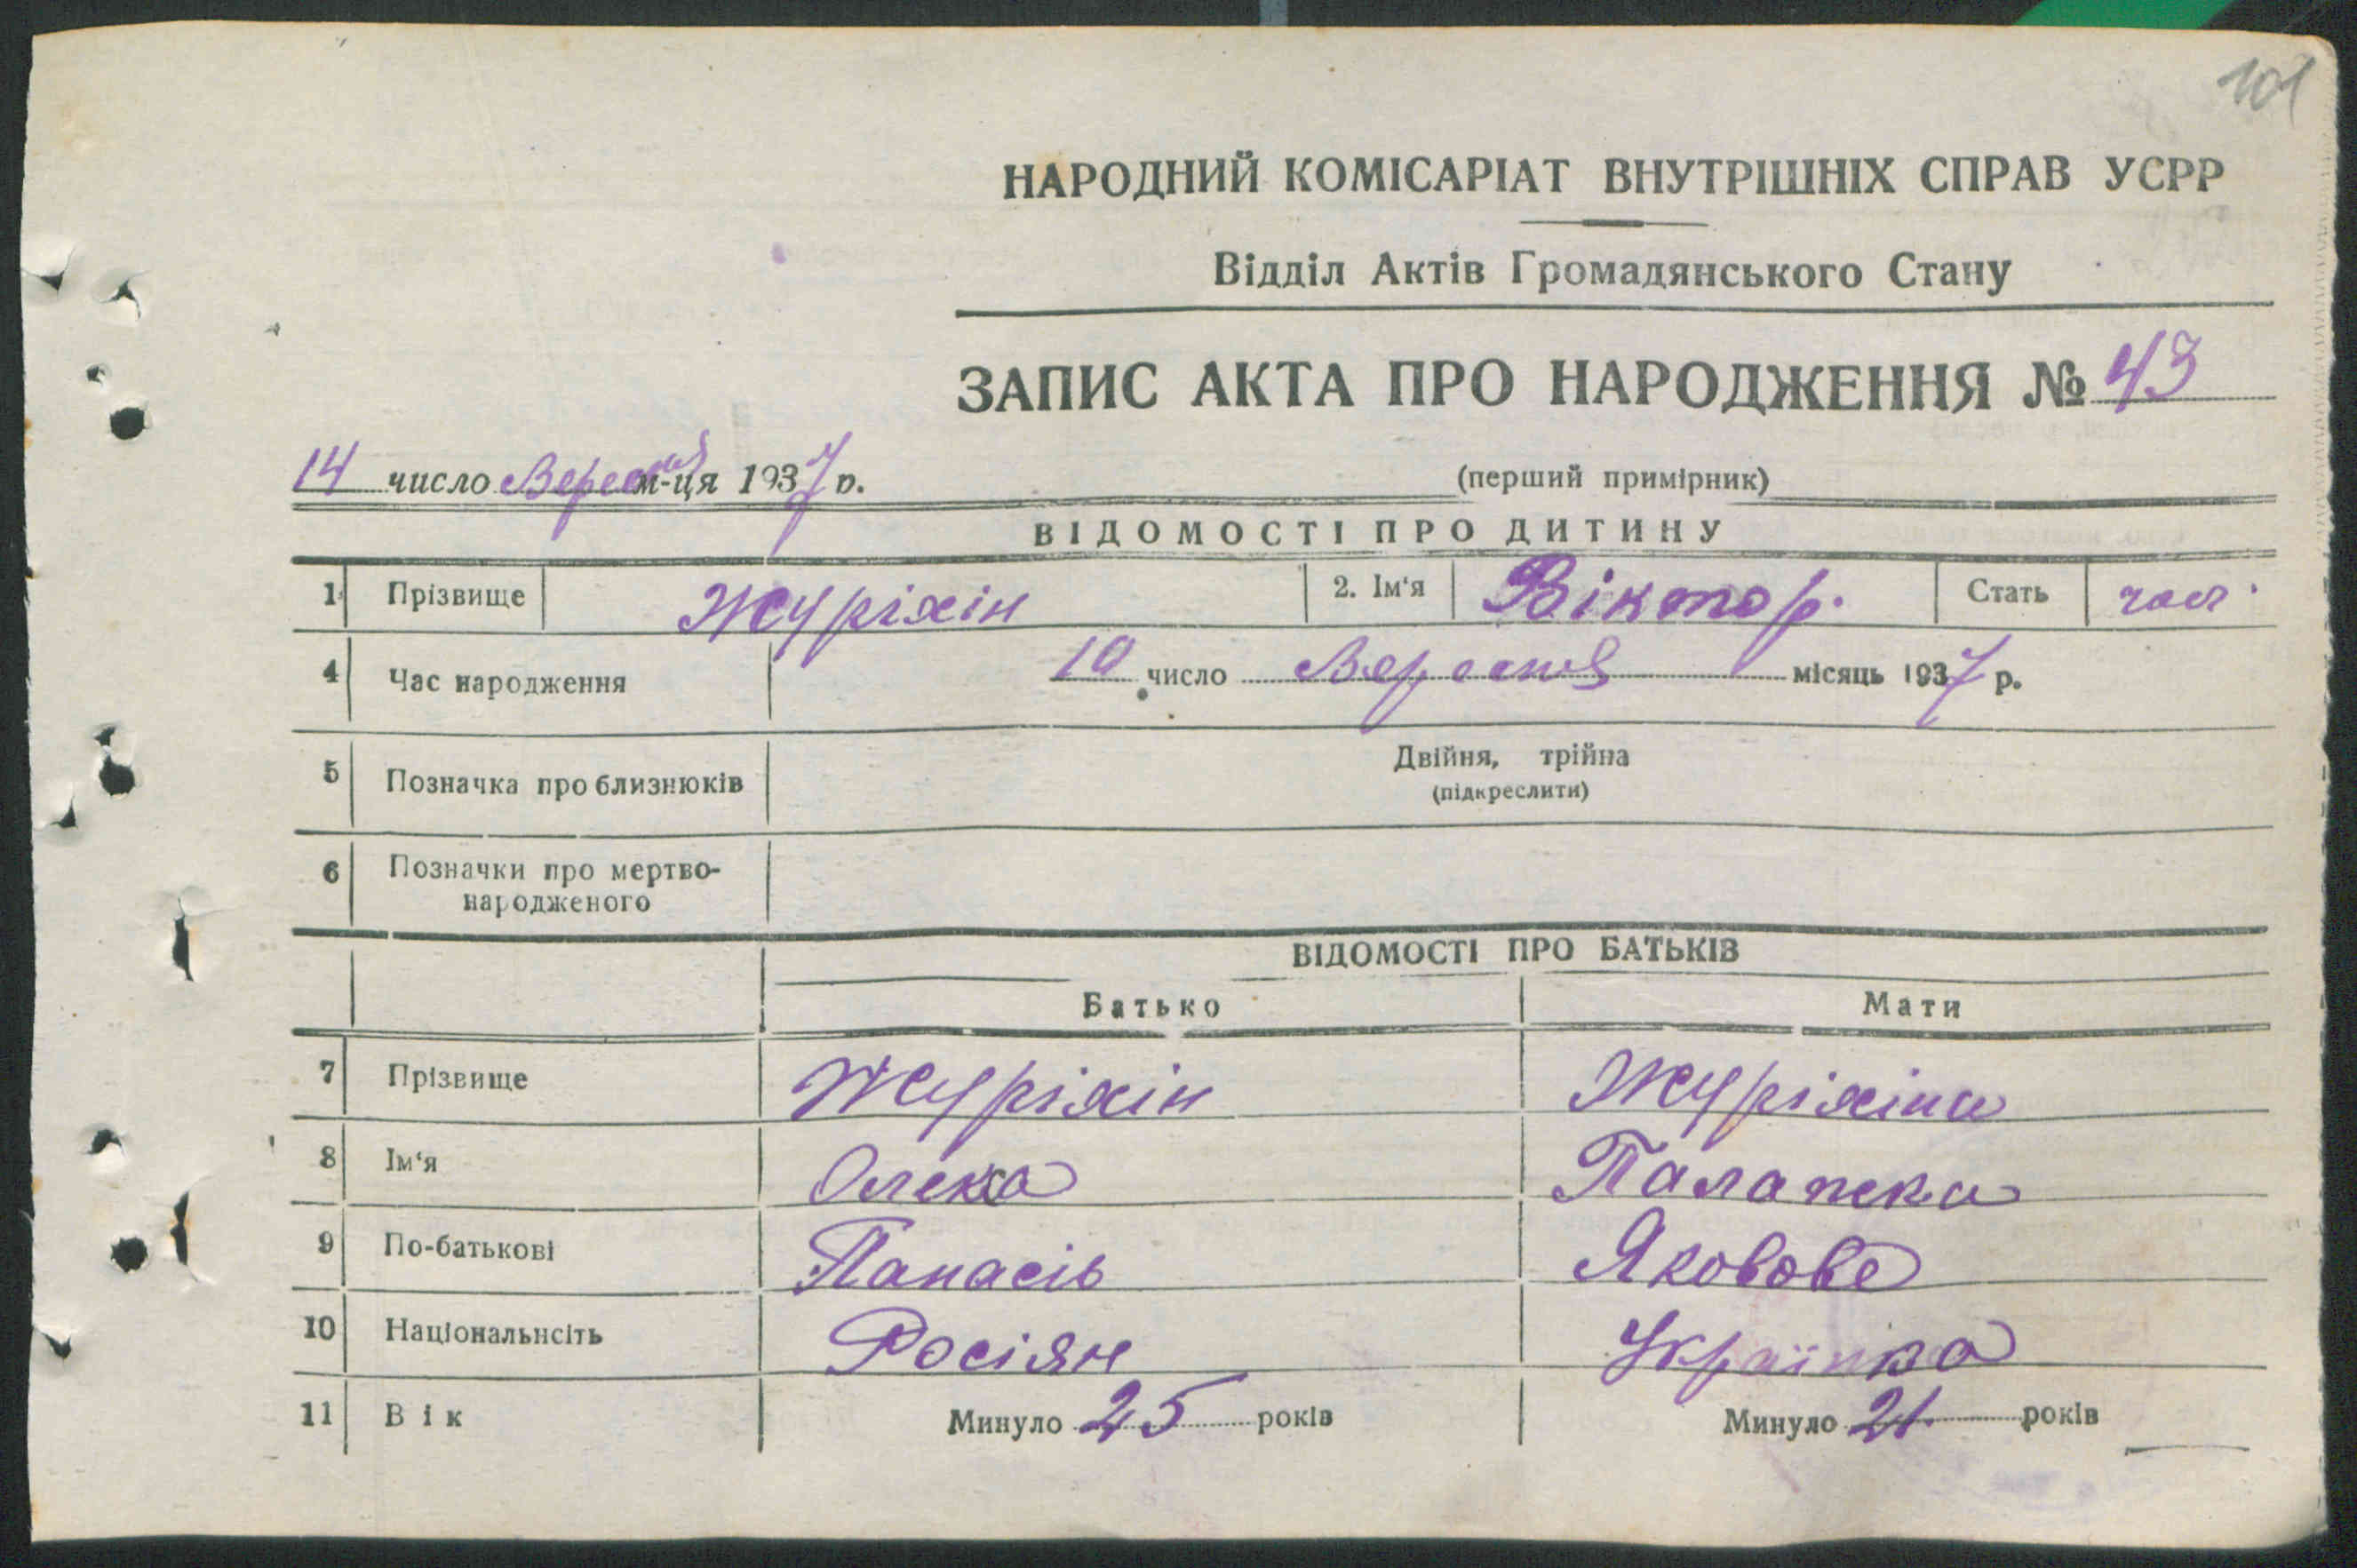 101
НАРОДНИЙ КОМІСАРІАТ ВНУТРІШНІХ СПРАВ УСРР
Відділ Актів Громадянського Стану
ЗАПИС АКТА ПРО НАРОДЖЕННЯ № 43
14 число Вересня м-ця 1937 р. (перший примірник)
ВІДОМОСТІ ПРО ДИТИНУ
1 Прізвище Журіхін 2. Ім'я Віктор. Стать чол.
4 Час народження 10 число Вересня місяць 1937 р.
5 Позначка про близнюків Двійня, трійна
(підкреслити)
6 Позначки про мертво-
народженого
ВІДОМОСТІ ПРО БАТЬКІВ
Батько Мати
7 Прізвище Журіхін Журіхіна
8 Ім'я Олекса Палажка
9 По-батькові Панасів Яковове
10 Національнсіть Росіян Українка
11 Вік Минуло 25 років Минуло 21. років